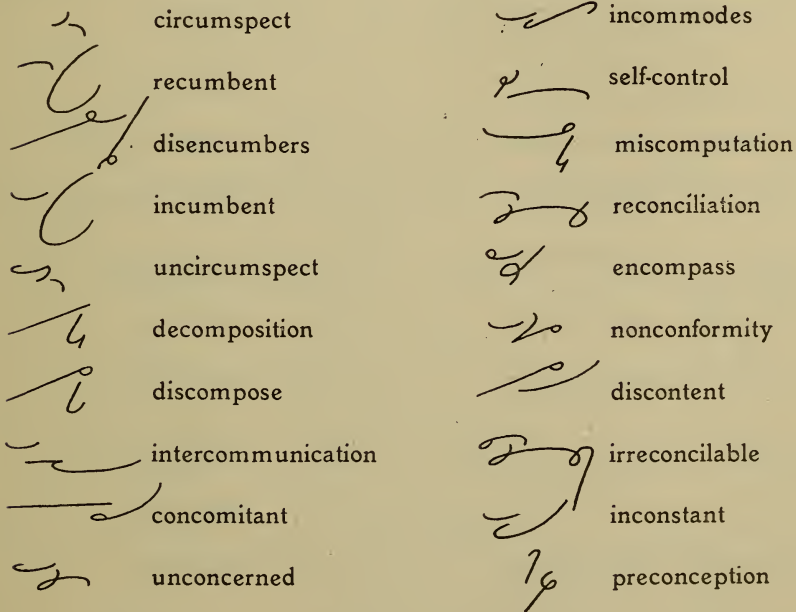 circumspect
recumbent
disencumbers
incumbent
uncircumspect
decomposition
discompose
intercommunication
concomitant
unconcerned
incommodes
self-control
miscomputation
reconciliation
encompass
nonconformity
discontent
irreconcilable
inconstant
preconception